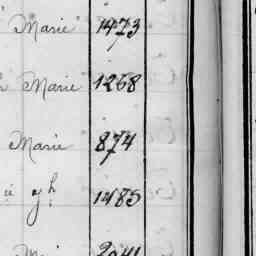 Marie 1473
Marie 1268
Marie 874
1485
2041